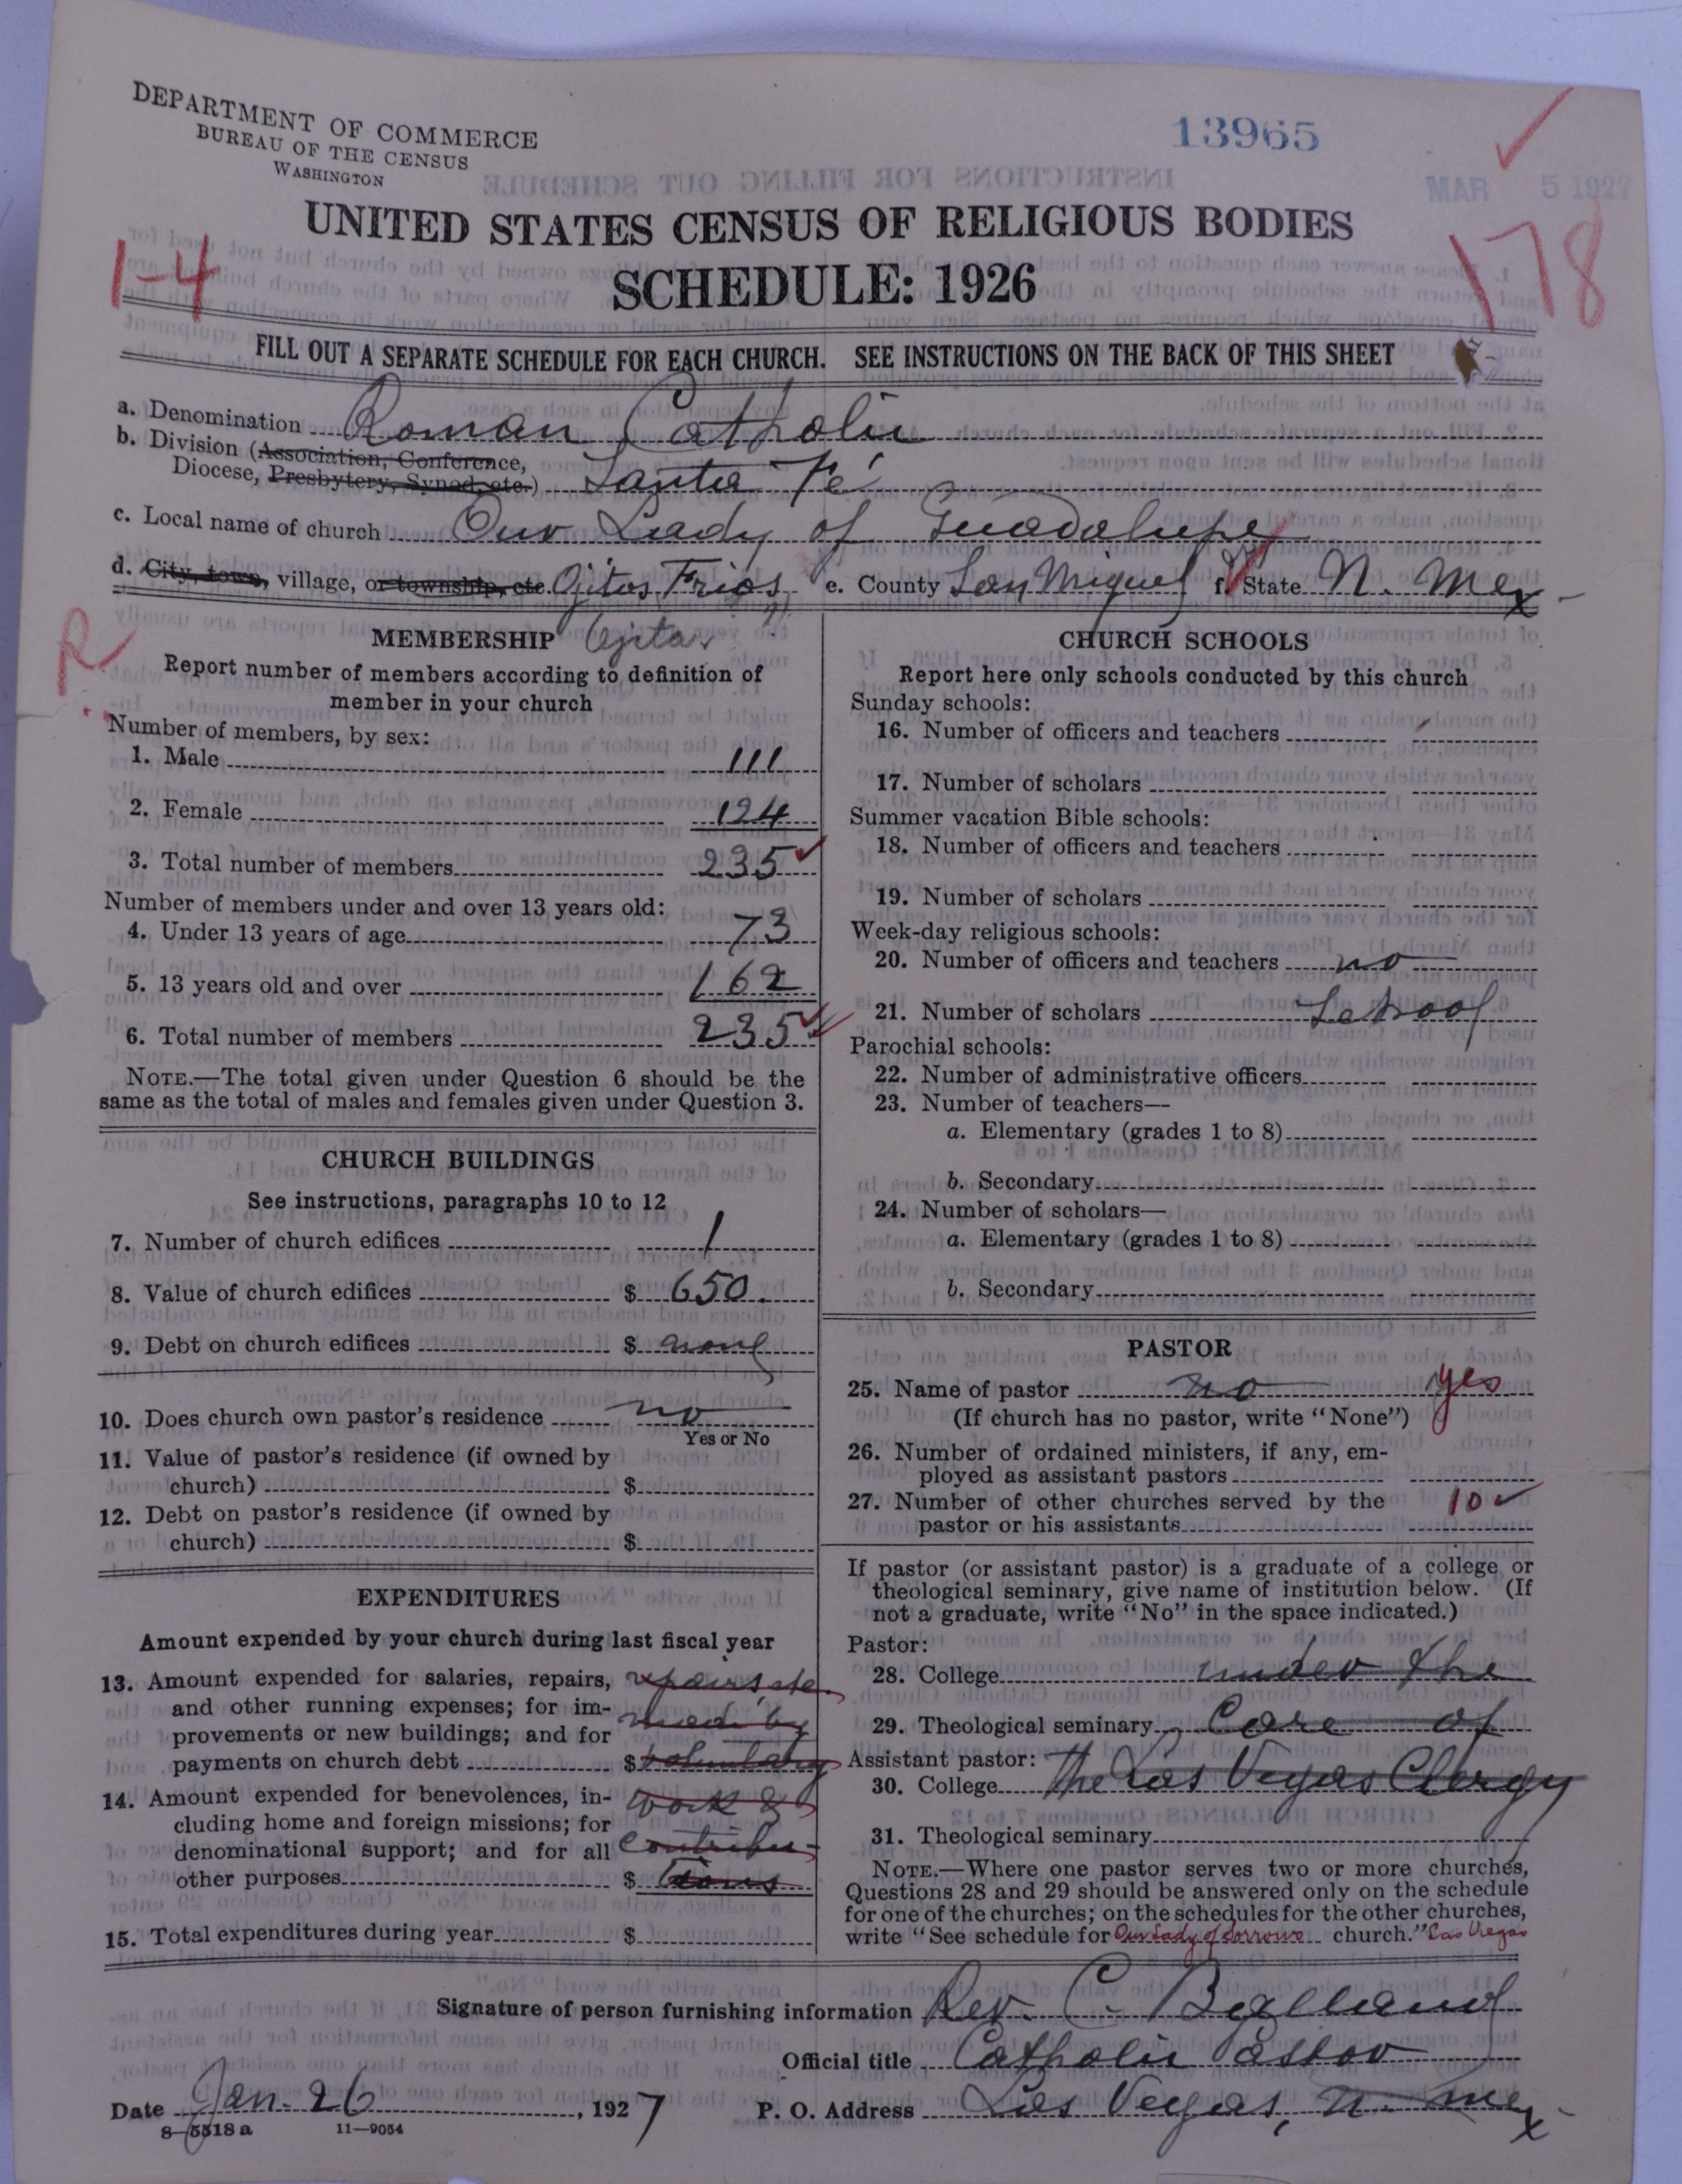 DEPARTMENT OF COMMERCE
BUREAU OF THE CENSUS
WASHINGTON
13965
MAR 5 1927
UNITED STATES CENSUS OF RELIGIOUS BODIES
1-4
178
SCHEDULE: 1926
FILL OUT A SEPARATE SCHEDULE FOR EACH CHURCH. SEE INSTRUCTIONS ON THE BACK OF THIS SHEET
a. Denomination Roman Catholic
b. Division (Association, Conference,
Diocese, Presbytery, Synod, etc.) Santa Fé
c. Local name of church Our Lady of Guadalupe
d. City, town, village, or township, etc. Ojitos Frios e. County San Miguel f. State N. Mex
R
MEMBERSHIP Ojitos
Report number of members according to definition of
member in your church
Number of members, by sex:
1. Male 111
2. Female 124
3. Total number of members 235
Number of members under and over 13 years old:
4. Under 13 years of age 73
5. 13 years old and over 162
6. Total number of members 235
NOTE.—The total given under Question 6 should be the
same as the total of males and females given under Question 3.
CHURCH BUILDINGS
See instructions, paragraphs 10 to 12
7. Number of church edifices 1
8. Value of church edifices $ 650.
9. Debt on church edifices $ none
10. Does church own pastor's residence no
Yes or No
11. Value of pastor's residence (if owned by
church) $
12. Debt on pastor's residence (if owned by
church) $
EXPENDITURES
Amount expended by your church during last fiscal year
13. Amount expended for salaries, repairs, repairs, etc.
and other running expenses; for im- made by
provements or new buildings; and for
payments on church debt $ voluntary
14. Amount expended for benevolences, in- work &
cluding home and foreign missions; for
denominational support; and for all contribu-
other purposes $ tions
15. Total expenditures during year $
CHURCH SCHOOLS
Report here only schools conducted by this church
Sunday schools:
16. Number of officers and teachers
17. Number of scholars
Summer vacation Bible schools:
18. Number of officers and teachers
19. Number of scholars
Week-day religious schools:
20. Number of officers and teachers no
21. Number of scholars School
Parochial schools:
22. Number of administrative officers
23. Number of teachers—
a. Elementary (grades 1 to 8)
b. Secondary
24. Number of scholars—
a. Elementary (grades 1 to 8)
b. Secondary
PASTOR
25. Name of pastor no yes
(If church has no pastor, write "None")
26. Number of ordained ministers, if any, em-
ployed as assistant pastors
27. Number of other churches served by the 10
pastor or his assistants
If pastor (or assistant pastor) is a graduate of a college or
theological seminary, give name of institution below. (If
not a graduate, write "No" in the space indicated.)
Pastor:
28. College under the
29. Theological seminary Care of
Assistant pastor:
30. College the Las Vegas Clergy
31. Theological seminary
NOTE.—Where one pastor serves two or more churches,
Questions 28 and 29 should be answered only on the schedule
for one of the churches; on the schedules for the other churches,
write "See schedule for Our Lady of Sorrows church." Las Vegas
Signature of person furnishing information Rev. C. Balland
Official title Catholic Pastor
Date Jan. 26, 1927 P. O. Address Las Vegas, N. Mex
8—5518 a 11—9054